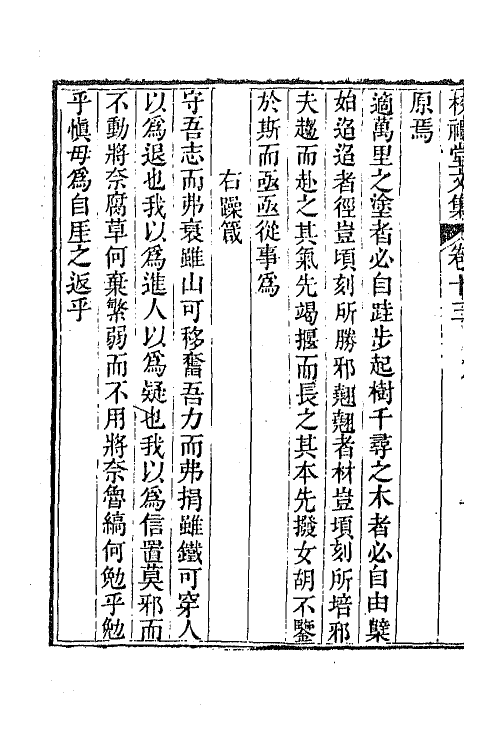 校禮堂文集 卷十三
原焉
適萬里之塗者必自跬步起樹千尋之木者必自由櫱
始迢迢者徑豈頃刻所勝邪翹翹者材豈頃刻所培邪
夫趨而赴之其氣先竭揠而長之其本先撥女胡不鑒
於斯而亟亟從事爲
右躁箴
守吾志而弗衰雖山可移奮吾力而弗捐雖鐵可穿人
以爲退也我以爲進人以爲疑也我以爲信置莫邪而
不動將奈腐草何棄繁弱而不用將奈魯縞何勉乎勉
乎愼毋爲自厓之返乎